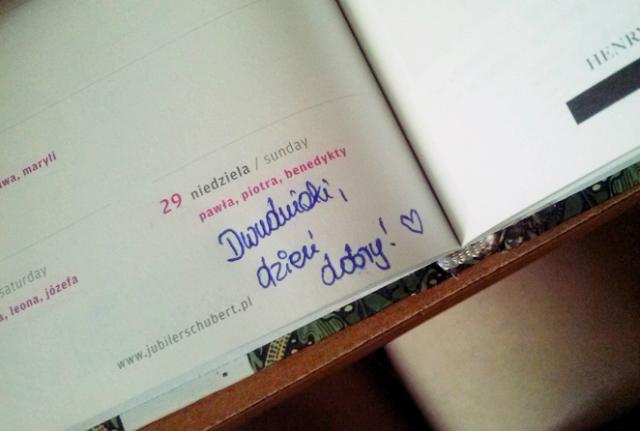 wa, maryli
29 niedziela / sunday
pawła, piotra, benedykty
Dwudniaki,
dzień
dobry! ♡
saturday
a, leona, józefa
www.jubilerschubert.pl
HENRY